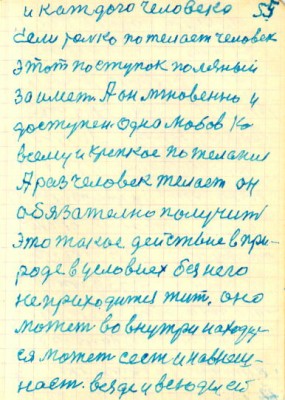 и каждого человека 55
сели только пожелает человек
этот поступок полный
займет. А он мгновенно и
доступен. Одна любов ко
всему и крепкое пожелания
А раз человек желает он
обязателно получит
это такое действие в при-
роде в условиех без него
не приходится жит, оно
может вовнутри находи-
ся может сест и навнеш-
наст. везде и всюду ей